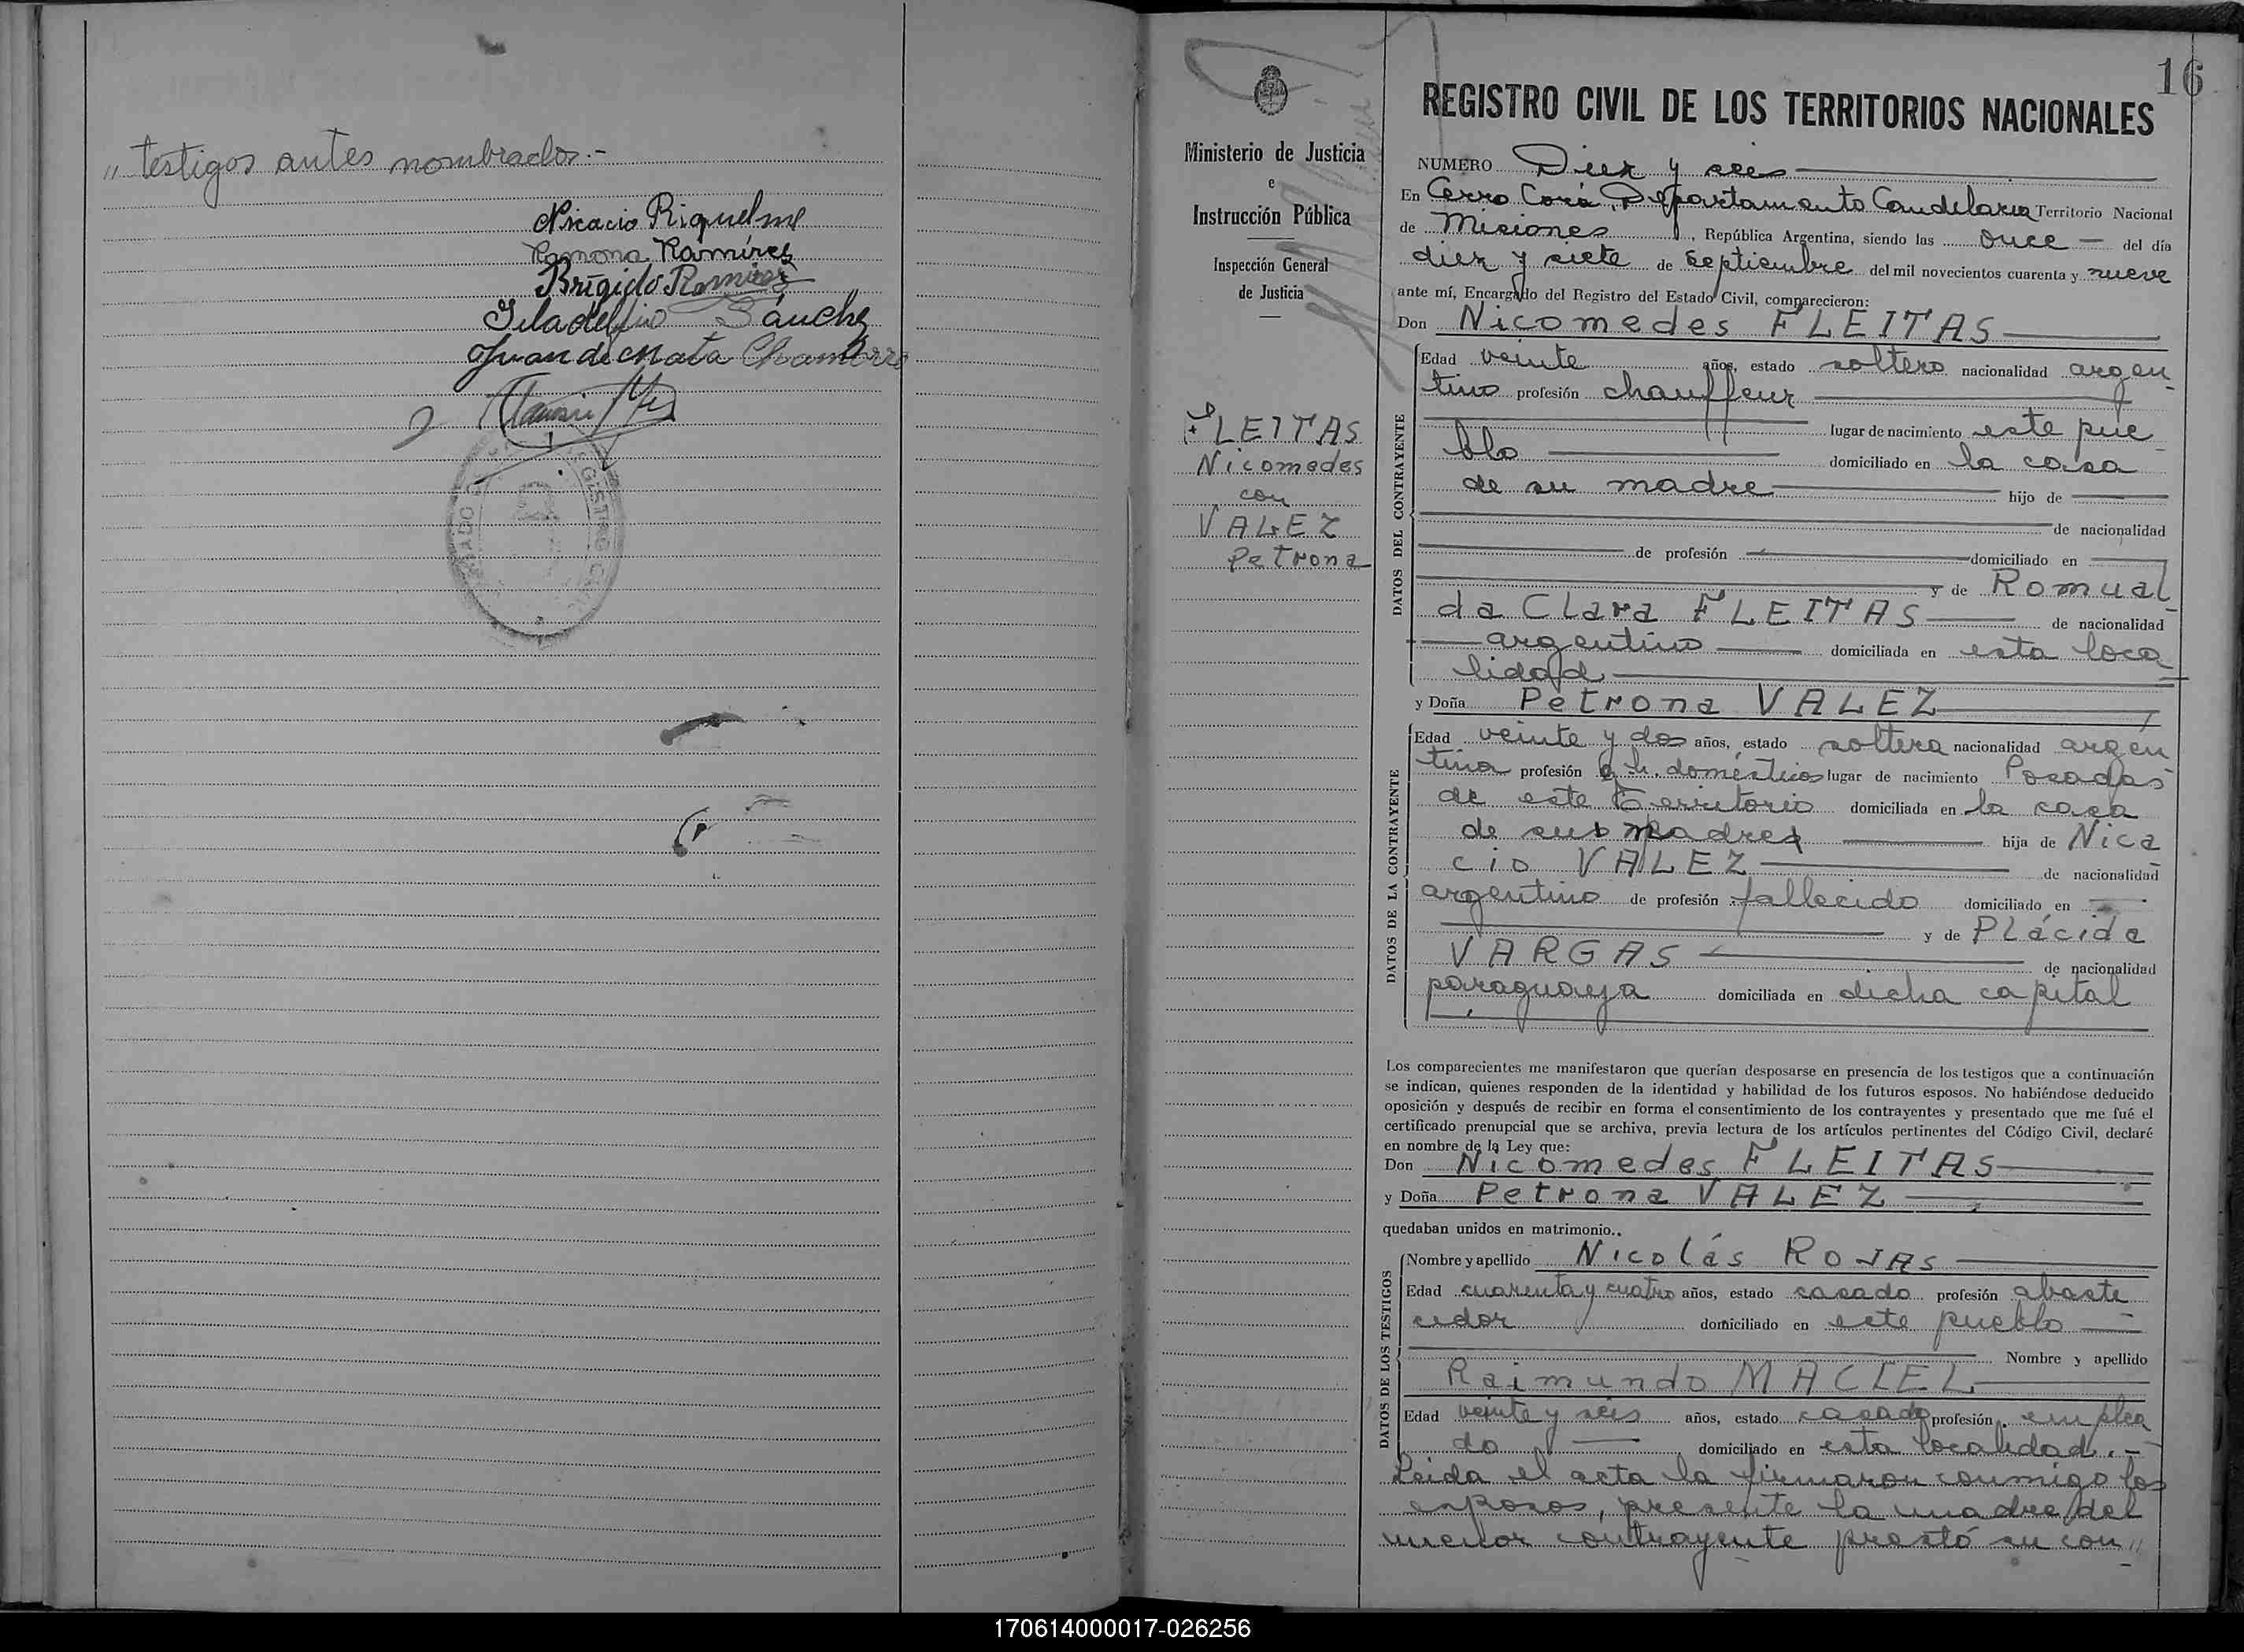 „ testigos antes nombrados.-
Nicacio Riquelme
Ramona Ramírez
Brígido Ramírez
Filadelfio Sánchez
Juan de Mata Chamorro
16
Ministerio de Justicia
e
Instrucción Pública
Inspección General
de Justicia
FLEITAS
Nicomedes
con
VALEZ
Petrona
REGISTRO CIVIL DE LOS TERRITORIOS NACIONALES
NUMERO Diez y seis
En Cerro Corá, Departamento Candelaria Territorio Nacional
de Misiones, República Argentina, siendo las once del día
diez y siete de septiembre del mil novecientos cuarenta y nueve
ante mí, Encargado del Registro del Estado Civil, comparecieron:
Don Nicomedes FLEITAS
DATOS DEL CONTRAYENTE
Edad veinte años, estado soltero nacionalidad argen
tino profesión chauffeur
lugar de nacimiento este pue
blo domiciliado en la casa
de su madre hijo de
de nacionalidad
de profesión domiciliado en
y de Romual
da Clara FLEITAS de nacionalidad
argentino domiciliada en esta loca
lidad
y Doña Petrona VALEZ
DATOS DE LA CONTRAYENTE
Edad veinte y dos años, estado soltera nacionalidad argen
tina profesión q. h. domésticos lugar de nacimiento Posadas
de este Territorio domiciliada en la casa
de sus padres hija de Nica
cio VALEZ de nacionalidad
argentino de profesión fallecido domiciliado en
y de Plácida
VARGAS de nacionalidad
paraguaya domiciliada en dicha capital
Los comparecientes me manifestaron que querían desposarse en presencia de los testigos que a continuación
se indican, quienes responden de la identidad y habilidad de los futuros esposos. No habiéndose deducido
oposición y después de recibir en forma el consentimiento de los contrayentes y presentado que me fué el
certificado prenupcial que se archiva, previa lectura de los artículos pertinentes del Código Civil, declaré
en nombre de la Ley que:
Don Nicomedes FLEITAS
y Doña Petrona VALEZ
quedaban unidos en matrimonio..
DATOS DE LOS TESTIGOS
Nombre y apellido Nicolás ROJAS
Edad cuarenta y cuatro años, estado casado profesión abaste
cedor domiciliado en este pueblo
Nombre y apellido
Raimundo MACIEL
Edad veinte y seis años, estado casado profesión emplea
do domiciliado en esta localidad.-
Leida el acta la firmaron conmigo los
esposos, presente la madre del
menor contrayente prestó su con„
170614000017-026256